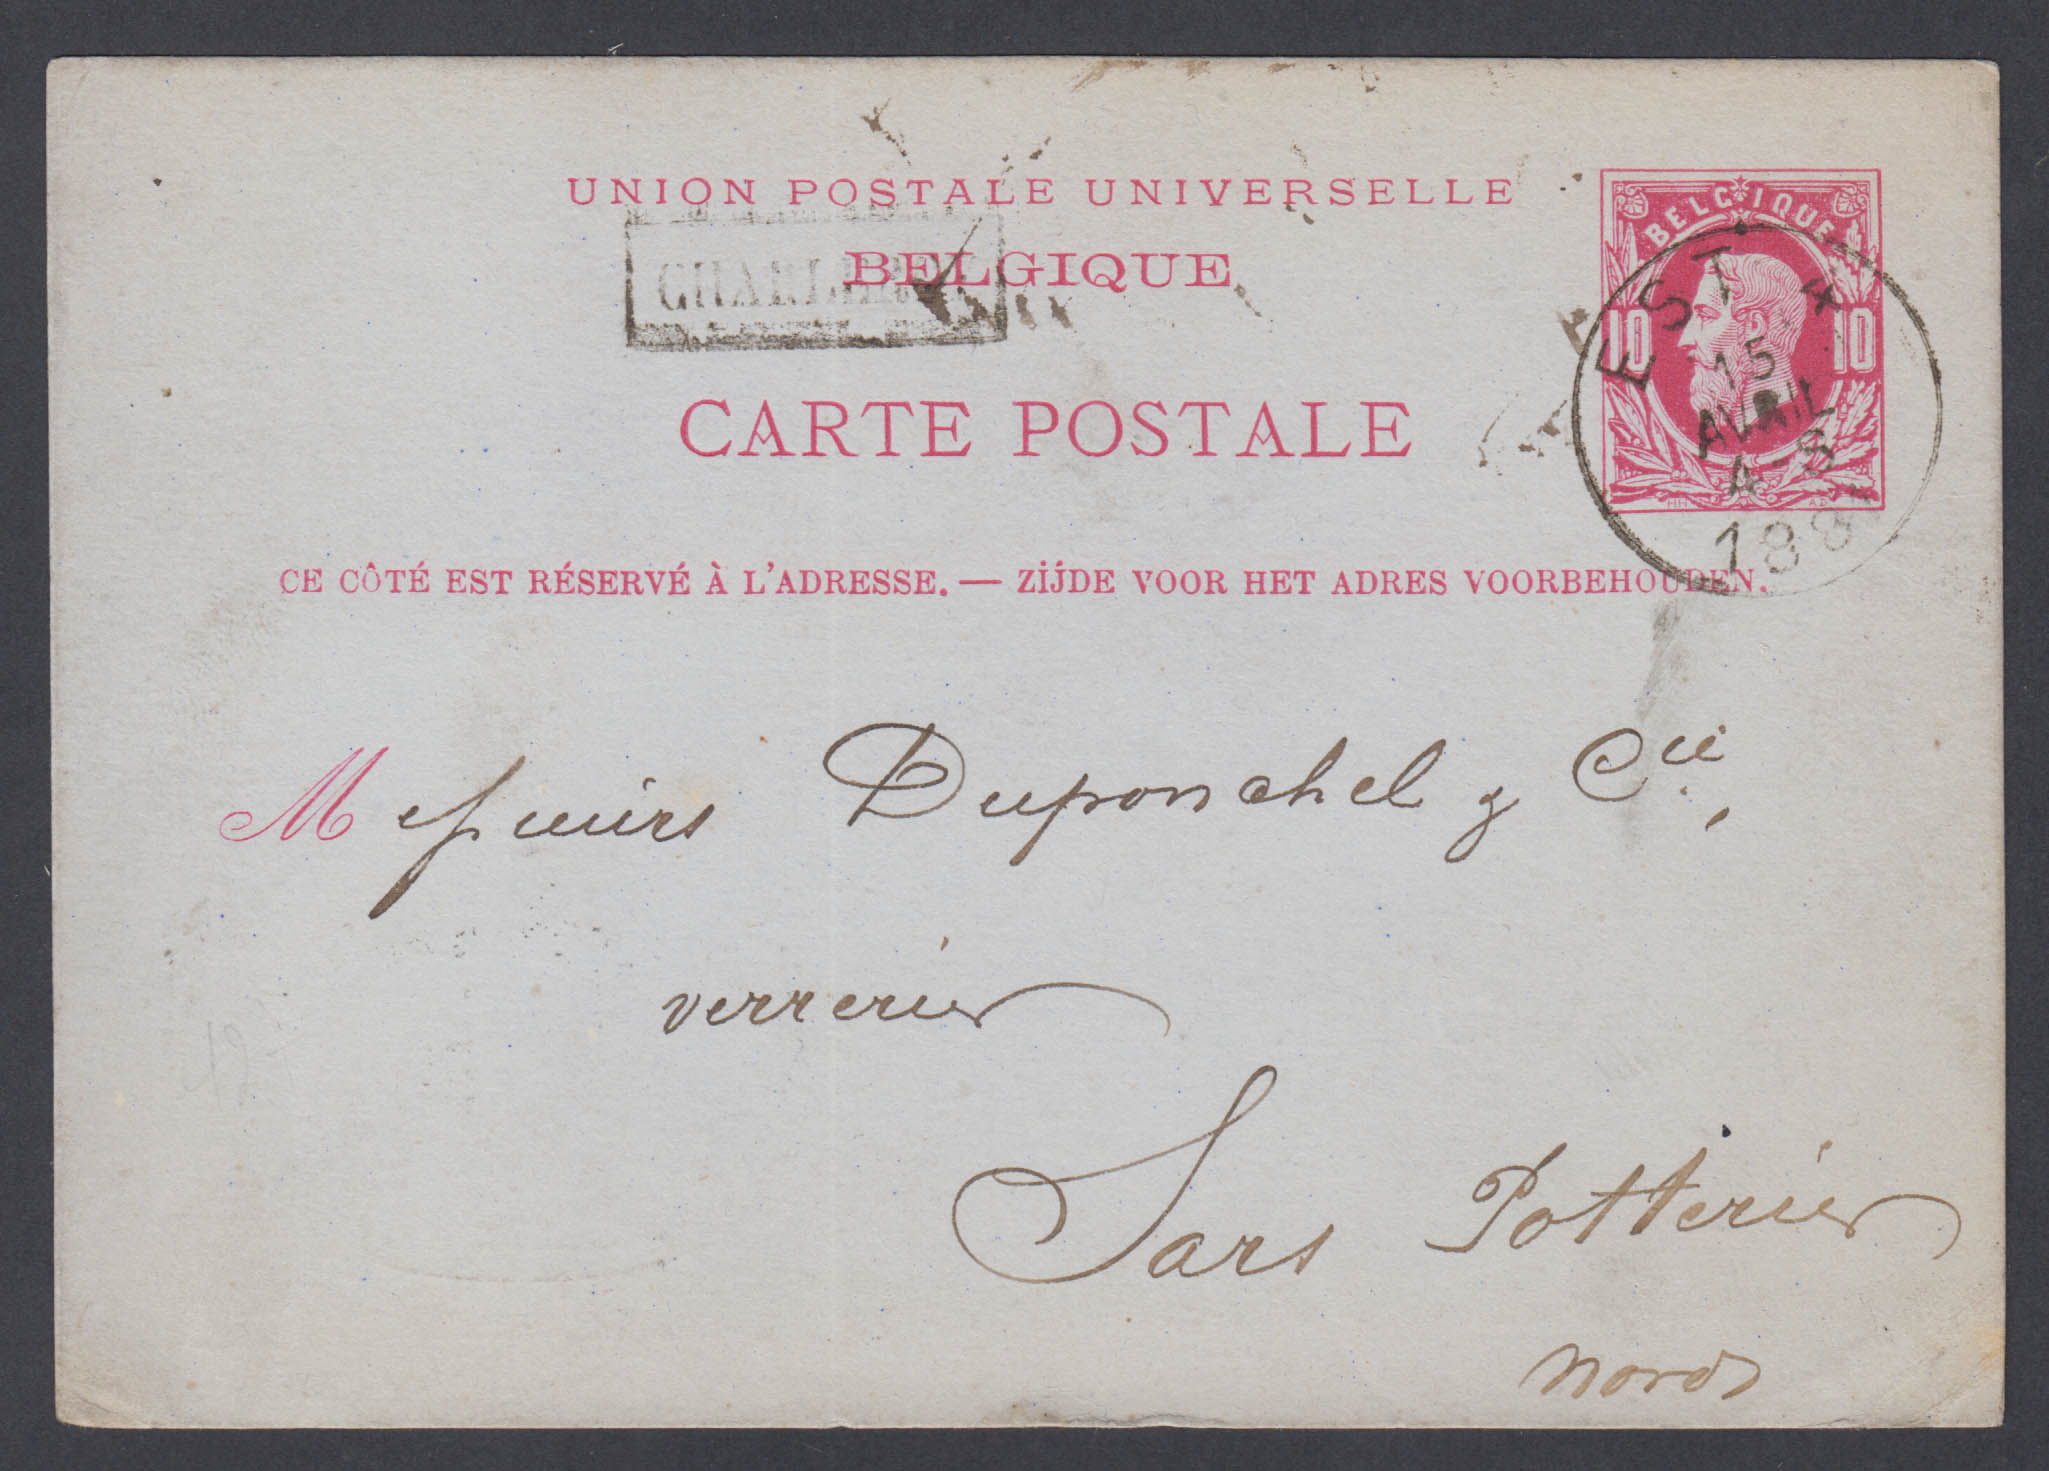 UNION POSTALE UNIVERSELLE
BELGIQUE
CARTE POSTALE
BELGIQUE
10 10
EST 4
15
AVRIL
4-8
CE CÔTÉ EST RÉSERVÉ À L'ADRESSE. — ZIJDE VOOR HET ADRES VOORBEHOUDEN.
Messieurs Duponchel & Cie,
verreries
Sars Potteries
Nord